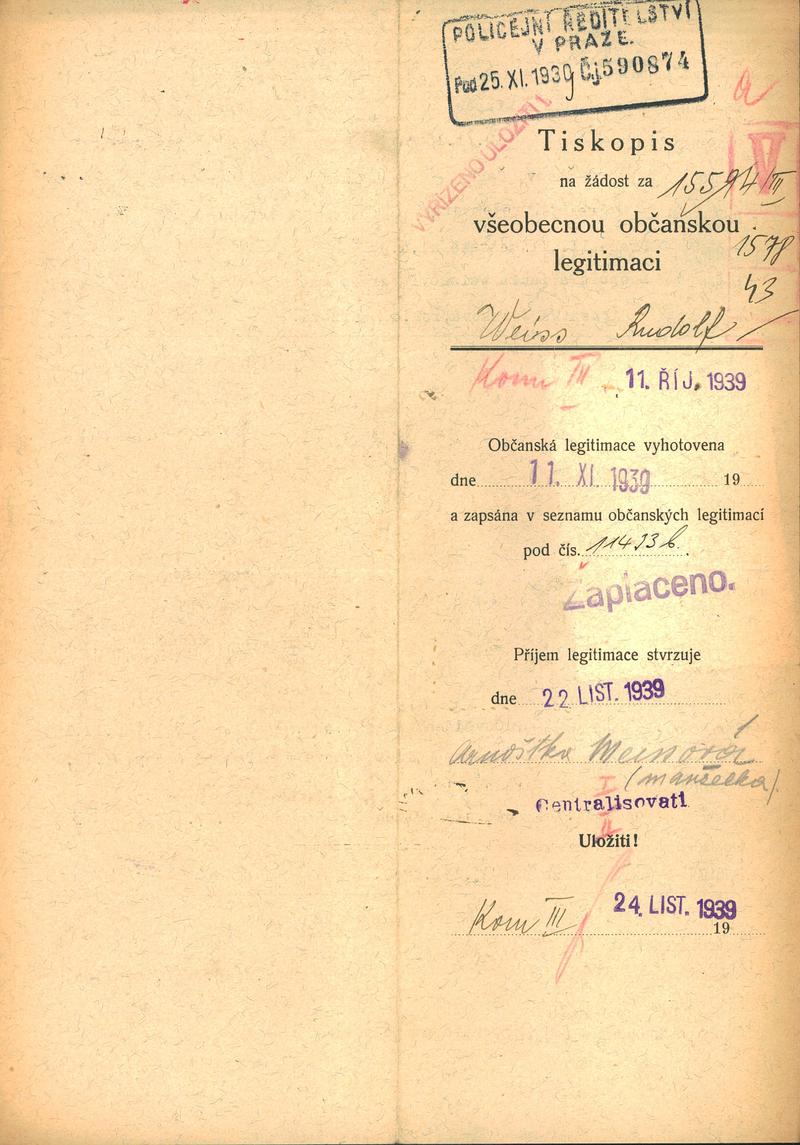 POLICEJNÍ ŘEDITELSTVÍ
V PRAZE.
Pod 25. XI. 1939 Čj 590874
a
VYŘÍZENO ULOŽITI!
Tiskopis
V
na žádost za 15594/III
všeobecnou občanskou
1578
legitimaci
43
Weiss Rudolf
Kom III 11. ŘÍJ. 1939
Občanská legitimace vyhotovena
dne 11. XI. 1939 19
a zapsána v seznamu občanských legitimací
pod čís. 11433b.
Zaplaceno.
Příjem legitimace stvrzuje
dne 22 LIST. 1939
Arnoštka Weissová
(manželka)
Centralisovati
Uložiti!
Kom III 24. LIST. 1939
19